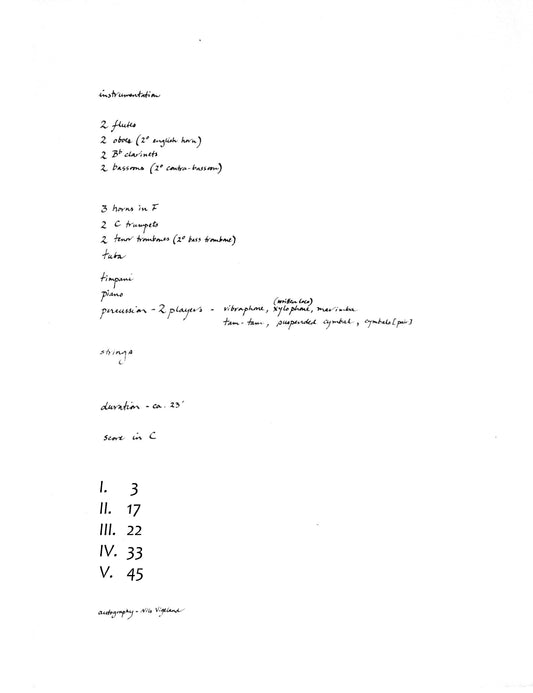 instrumentation
2 flutes
2 oboes (2º english horn)
2 Bb clarinets
2 bassoons (2º contra-bassoon)
3 horns in F
2 C trumpets
2 tenor trombones (2º bass trombone)
tuba
timpani
piano
(written loco)
percussion - 2 players - vibraphone, xylophone, marimba
tam-tam, suspended cymbal, cymbals [pair]
strings
duration - ca. 23'
score in C
I. 3
II. 17
III. 22
IV. 33
V. 45
autography - Nils Vigeland